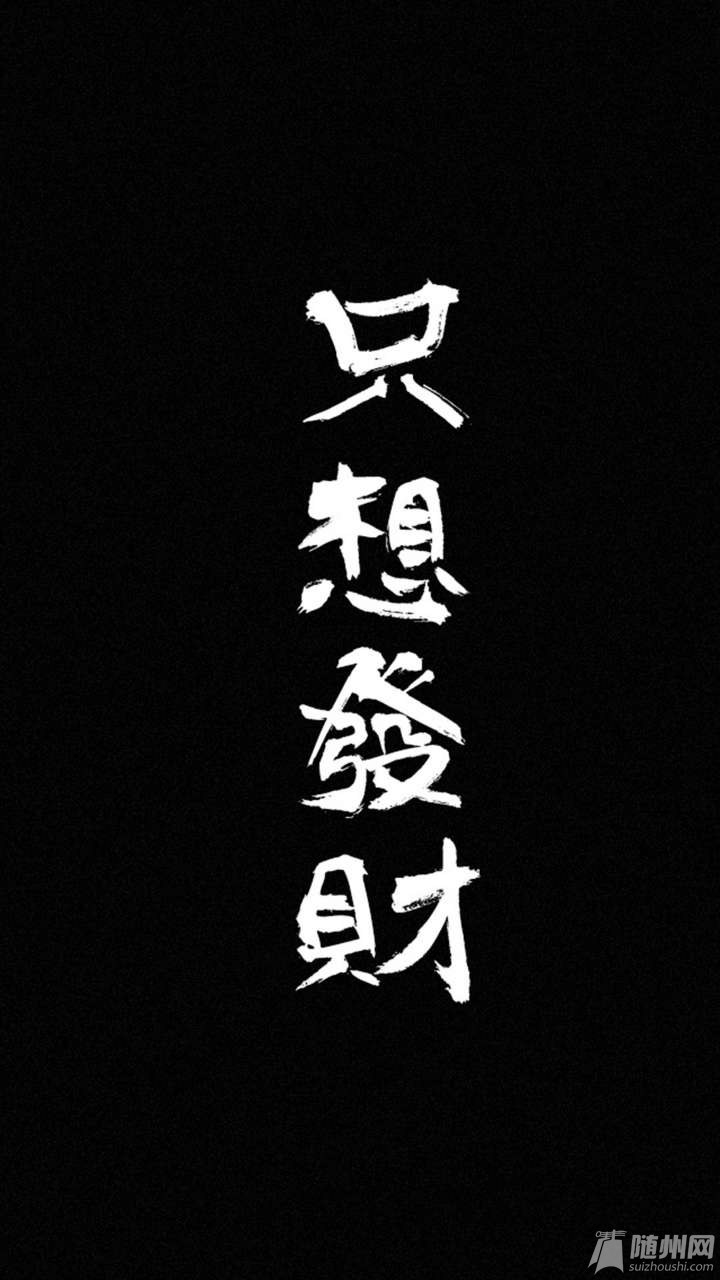 只想發財
随州网
suizhoushi.com